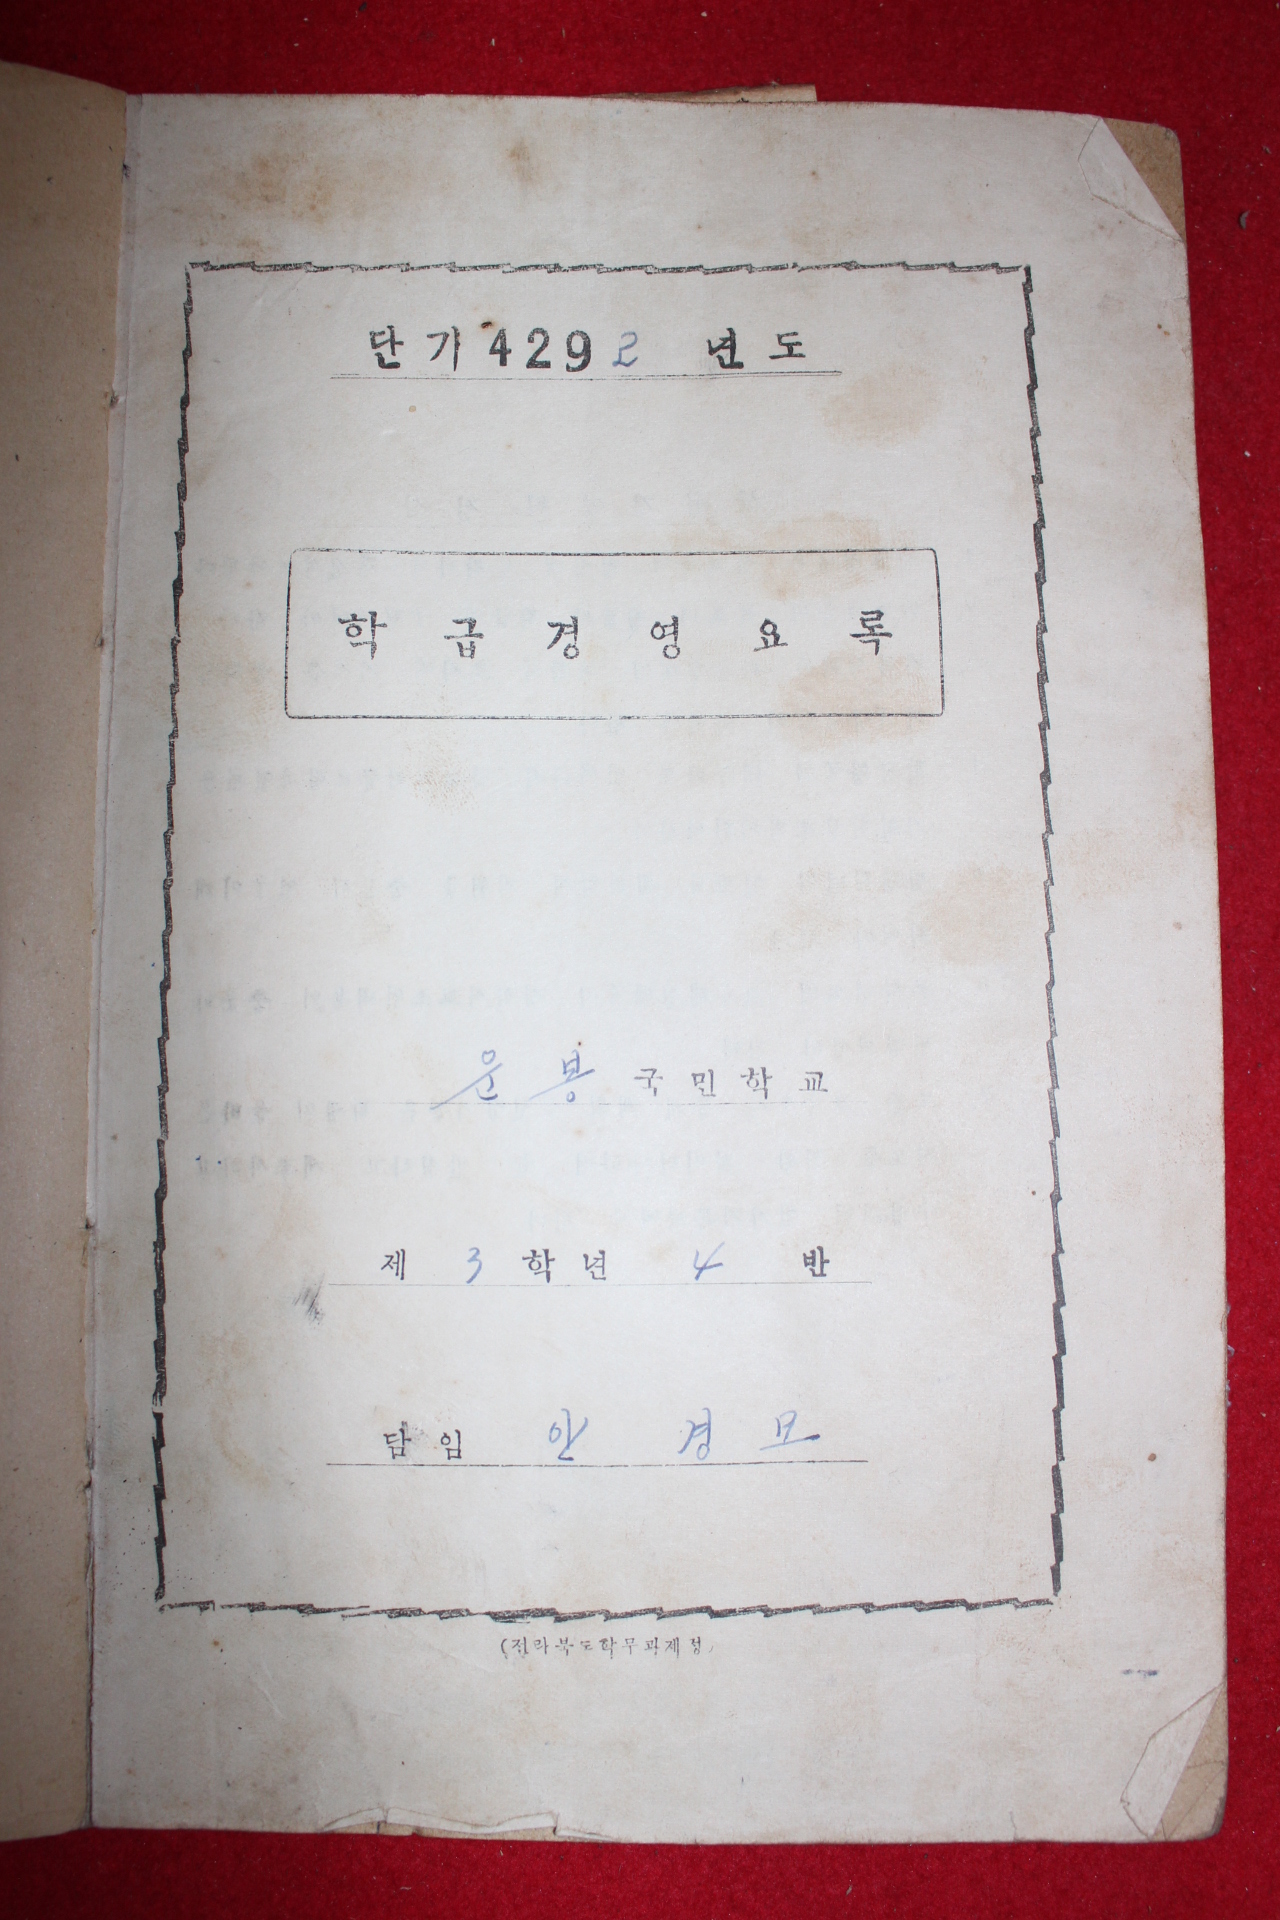 단기 4292 년도
학급경영요록
운봉 국민학교
제 3 학년 4 반
담임 안경모
(전라북도학무과제정)